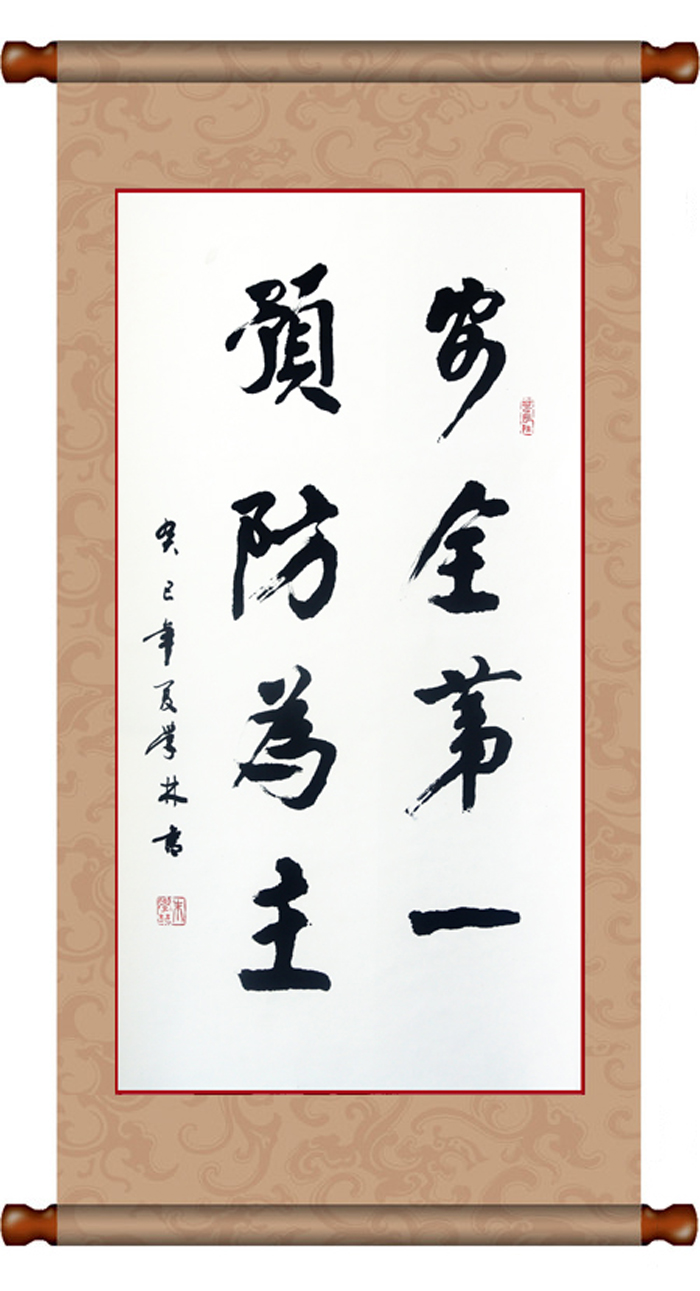 安全第一
預防為主
癸巳年夏學林書